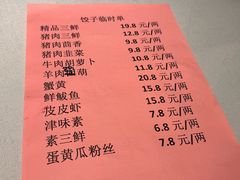 饺子临时单
精品三鲜 19.8 元/两
猪肉三鲜 12.8 元/两
猪肉茴香 9.8 元/两
猪肉韭菜 9.8 元/两
牛肉胡萝卜 10.8 元/两
羊肉 胡 11.8 元/两
蟹黄 20.8 元/两
鲜鲅鱼 15.8 元/两
皮皮虾 15.8 元/两
津味素 7.8 元/两
素三鲜 6.8 元/两
蛋黄瓜粉丝 7.8 元/两